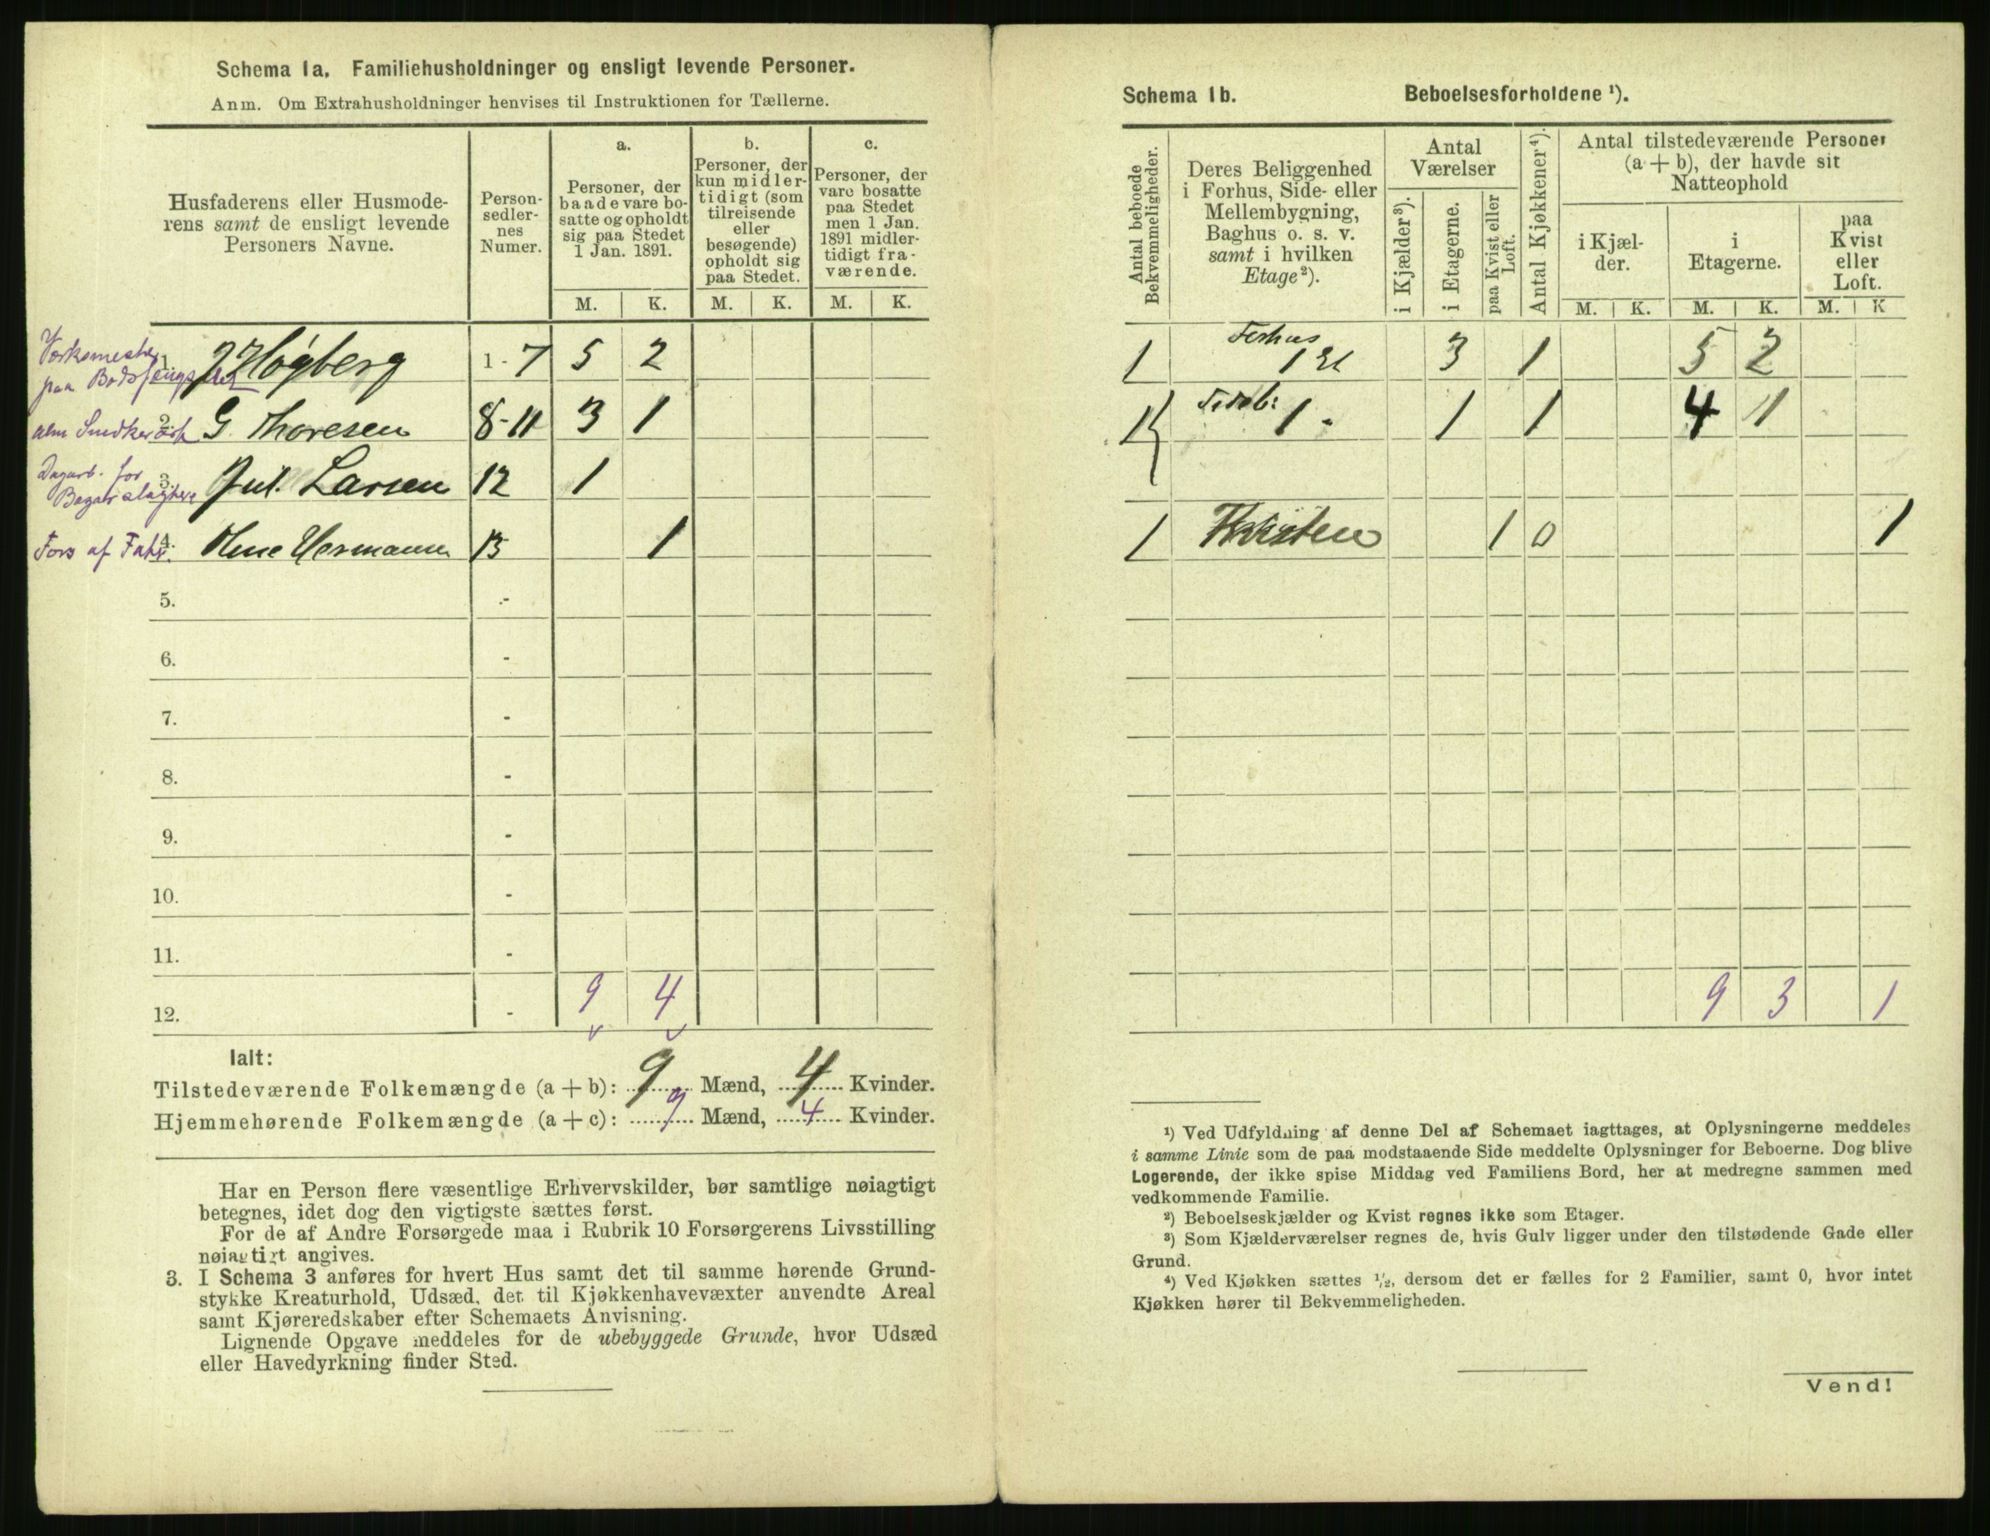 Schema 1a. Familiehusholdninger og ensligt levende Personer.
Anm. Om Extrahusholdninger henvises til Instruktionen for Tællerne.
Husfaderens eller Husmoderens samt de ensligt levende Personers Navne.
Personsedlernes Numer.
a.
Personer, der baade vare bosatte og opholdt sig paa Stedet 1 Jan. 1891.
b.
Personer, der kun midlertidigt (som tilreisende eller besøgende) opholdt sig paa Stedet.
c.
Personer, der vare bosatte paa Stedet men 1 Jan. 1891 midlertidigt fraværende.
M. K. M. K. M. K.
Værksmester paa Bodsfængslet
1. J Høgberg 1 - 7 5 2
2. G. Thoresen 8 - 11 3 1
Dagarb. for
3. Jul. Larsen 12 1
Fors af Fatv. 4. Hermansen 13 1
5. -
6. -
7. -
8. -
9. -
10. -
11. -
12. - 9 4
Ialt:
Tilstedeværende Folkemængde (a + b): 9 Mænd, 4 Kvinder.
Hjemmehørende Folkemængde (a + c): 9 Mænd, 4 Kvinder.
Har en Person flere væsentlige Erhvervskilder, bør samtlige nøiagtigt
betegnes, idet dog den vigtigste sættes først.
For de af Andre Forsørgede maa i Rubrik 10 Forsørgerens Livsstilling
nøiagtigt angives.
3. I Schema 3 anføres for hvert Hus samt det til samme hørende Grund-
stykke Kreaturhold, Udsæd, det til Kjøkkenhavevæxter anvendte Areal
samt Kjøreredskaber efter Schemaets Anvisning.
Lignende Opgave meddeles for de ubebyggede Grunde, hvor Udsæd
eller Havedyrkning finder Sted.
Schema 1b. Beboelsesforholdene ¹).
Antal beboede Bekvemmeligheder.
Deres Beliggenhed i Forhus, Side- eller Mellembygning, Baghus o. s. v. samt i hvilken Etage ²).
Antal Værelser
i Kjælder ³).
i Etagerne.
paa Kvist eller Loft.
Antal Kjøkkener ⁴).
Antal tilstedeværende Personer (a + b), der havde sit Natteophold
i Kjælder.
i Etagerne.
paa Kvist eller Loft.
M. K. M. K. M. K
1 Forhus 1 Et 3 1 5 2
1 Sideb: 1 - 1 1 4 1
1 Kvisten 1 0 1
9 3 1
¹) Ved Udfyldning af denne Del af Schemaet iagttages, at Oplysningerne meddeles
i samme Linie som de paa modstaaende Side meddelte Oplysninger for Beboerne. Dog blive
Logerende, der ikke spise Middag ved Familiens Bord, her at medregne sammen med
vedkommende Familie.
²) Beboelseskjælder og Kvist regnes ikke som Etager.
³) Som Kjælderværelser regnes de, hvis Gulv ligger under den tilstødende Gade eller
Grund.
⁴) Ved Kjøkken sættes ½, dersom det er fælles for 2 Familier, samt 0, hvor intet
Kjøkken hører til Bekvemmeligheden.
Vend!